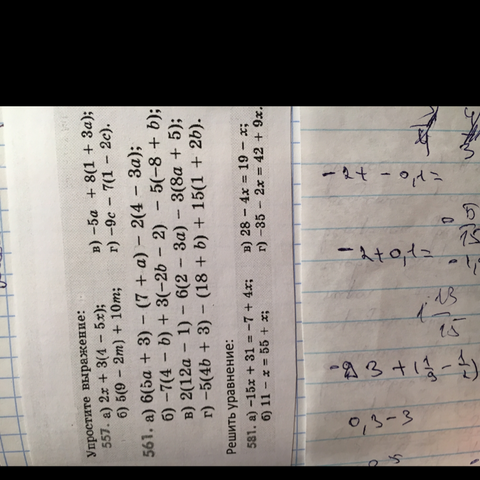 Упростите выражение:
557. а) 2x + 3(4 − 5x); в) −5a + 8(1 + 3a);
б) 5(9 − 2m) + 10m; г) −9c − 7(1 − 2c).
561. а) 6(5a + 3) − (7 + a) − 2(4 − 3a);
б) −7(4 − b) + 3(−2b − 2) − 5(−8 + b);
в) 2(12a − 1) − 6(2 − 3a) − 3(8a + 5);
г) −5(4b + 3) − (18 + b) + 15(1 + 2b).
Решить уравнение:
581. а) −15x + 31 = −7 + 4x; в) 28 − 4x = 19 − x;
б) 11 − x = 55 + x; г) −35 − 2x = 42 + 9x.
−2+ −0,1=
−2+0,1=
1 13/15
0,3−3